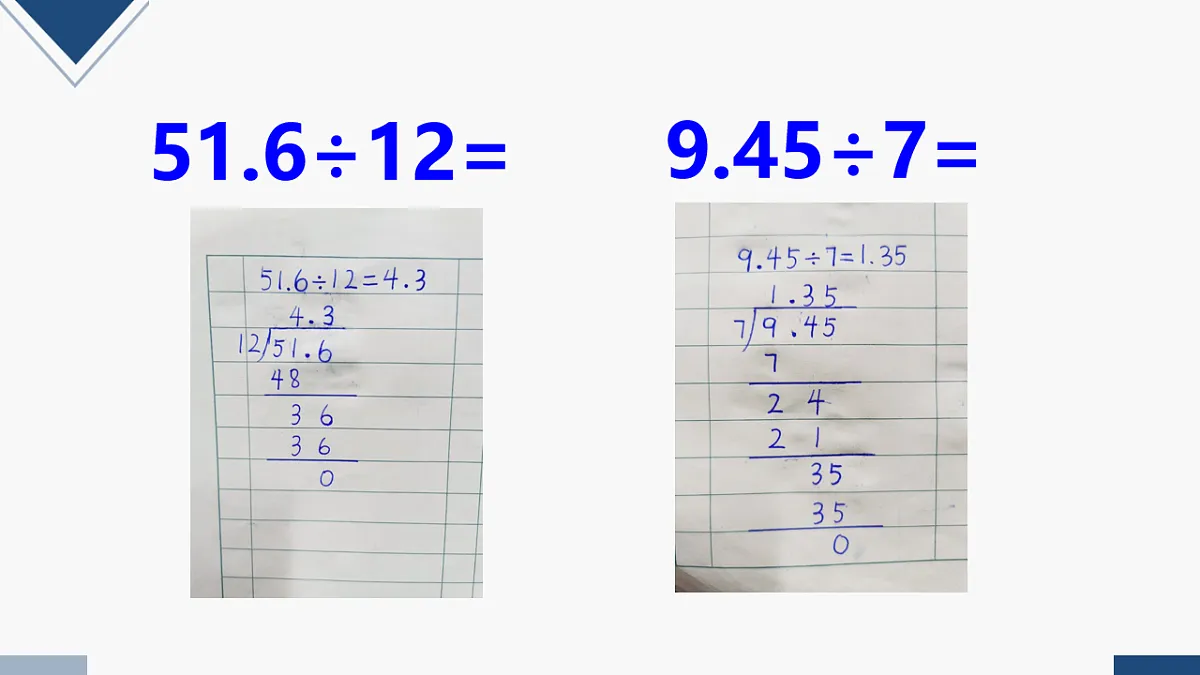 51.6÷12=
51.6÷12=4.3
4.3
12/51.6
48
3 6
3 6
0
9.45÷7=
9.45÷7=1.35
1.35
7/9.45
7
2 4
2 1
35
35
0